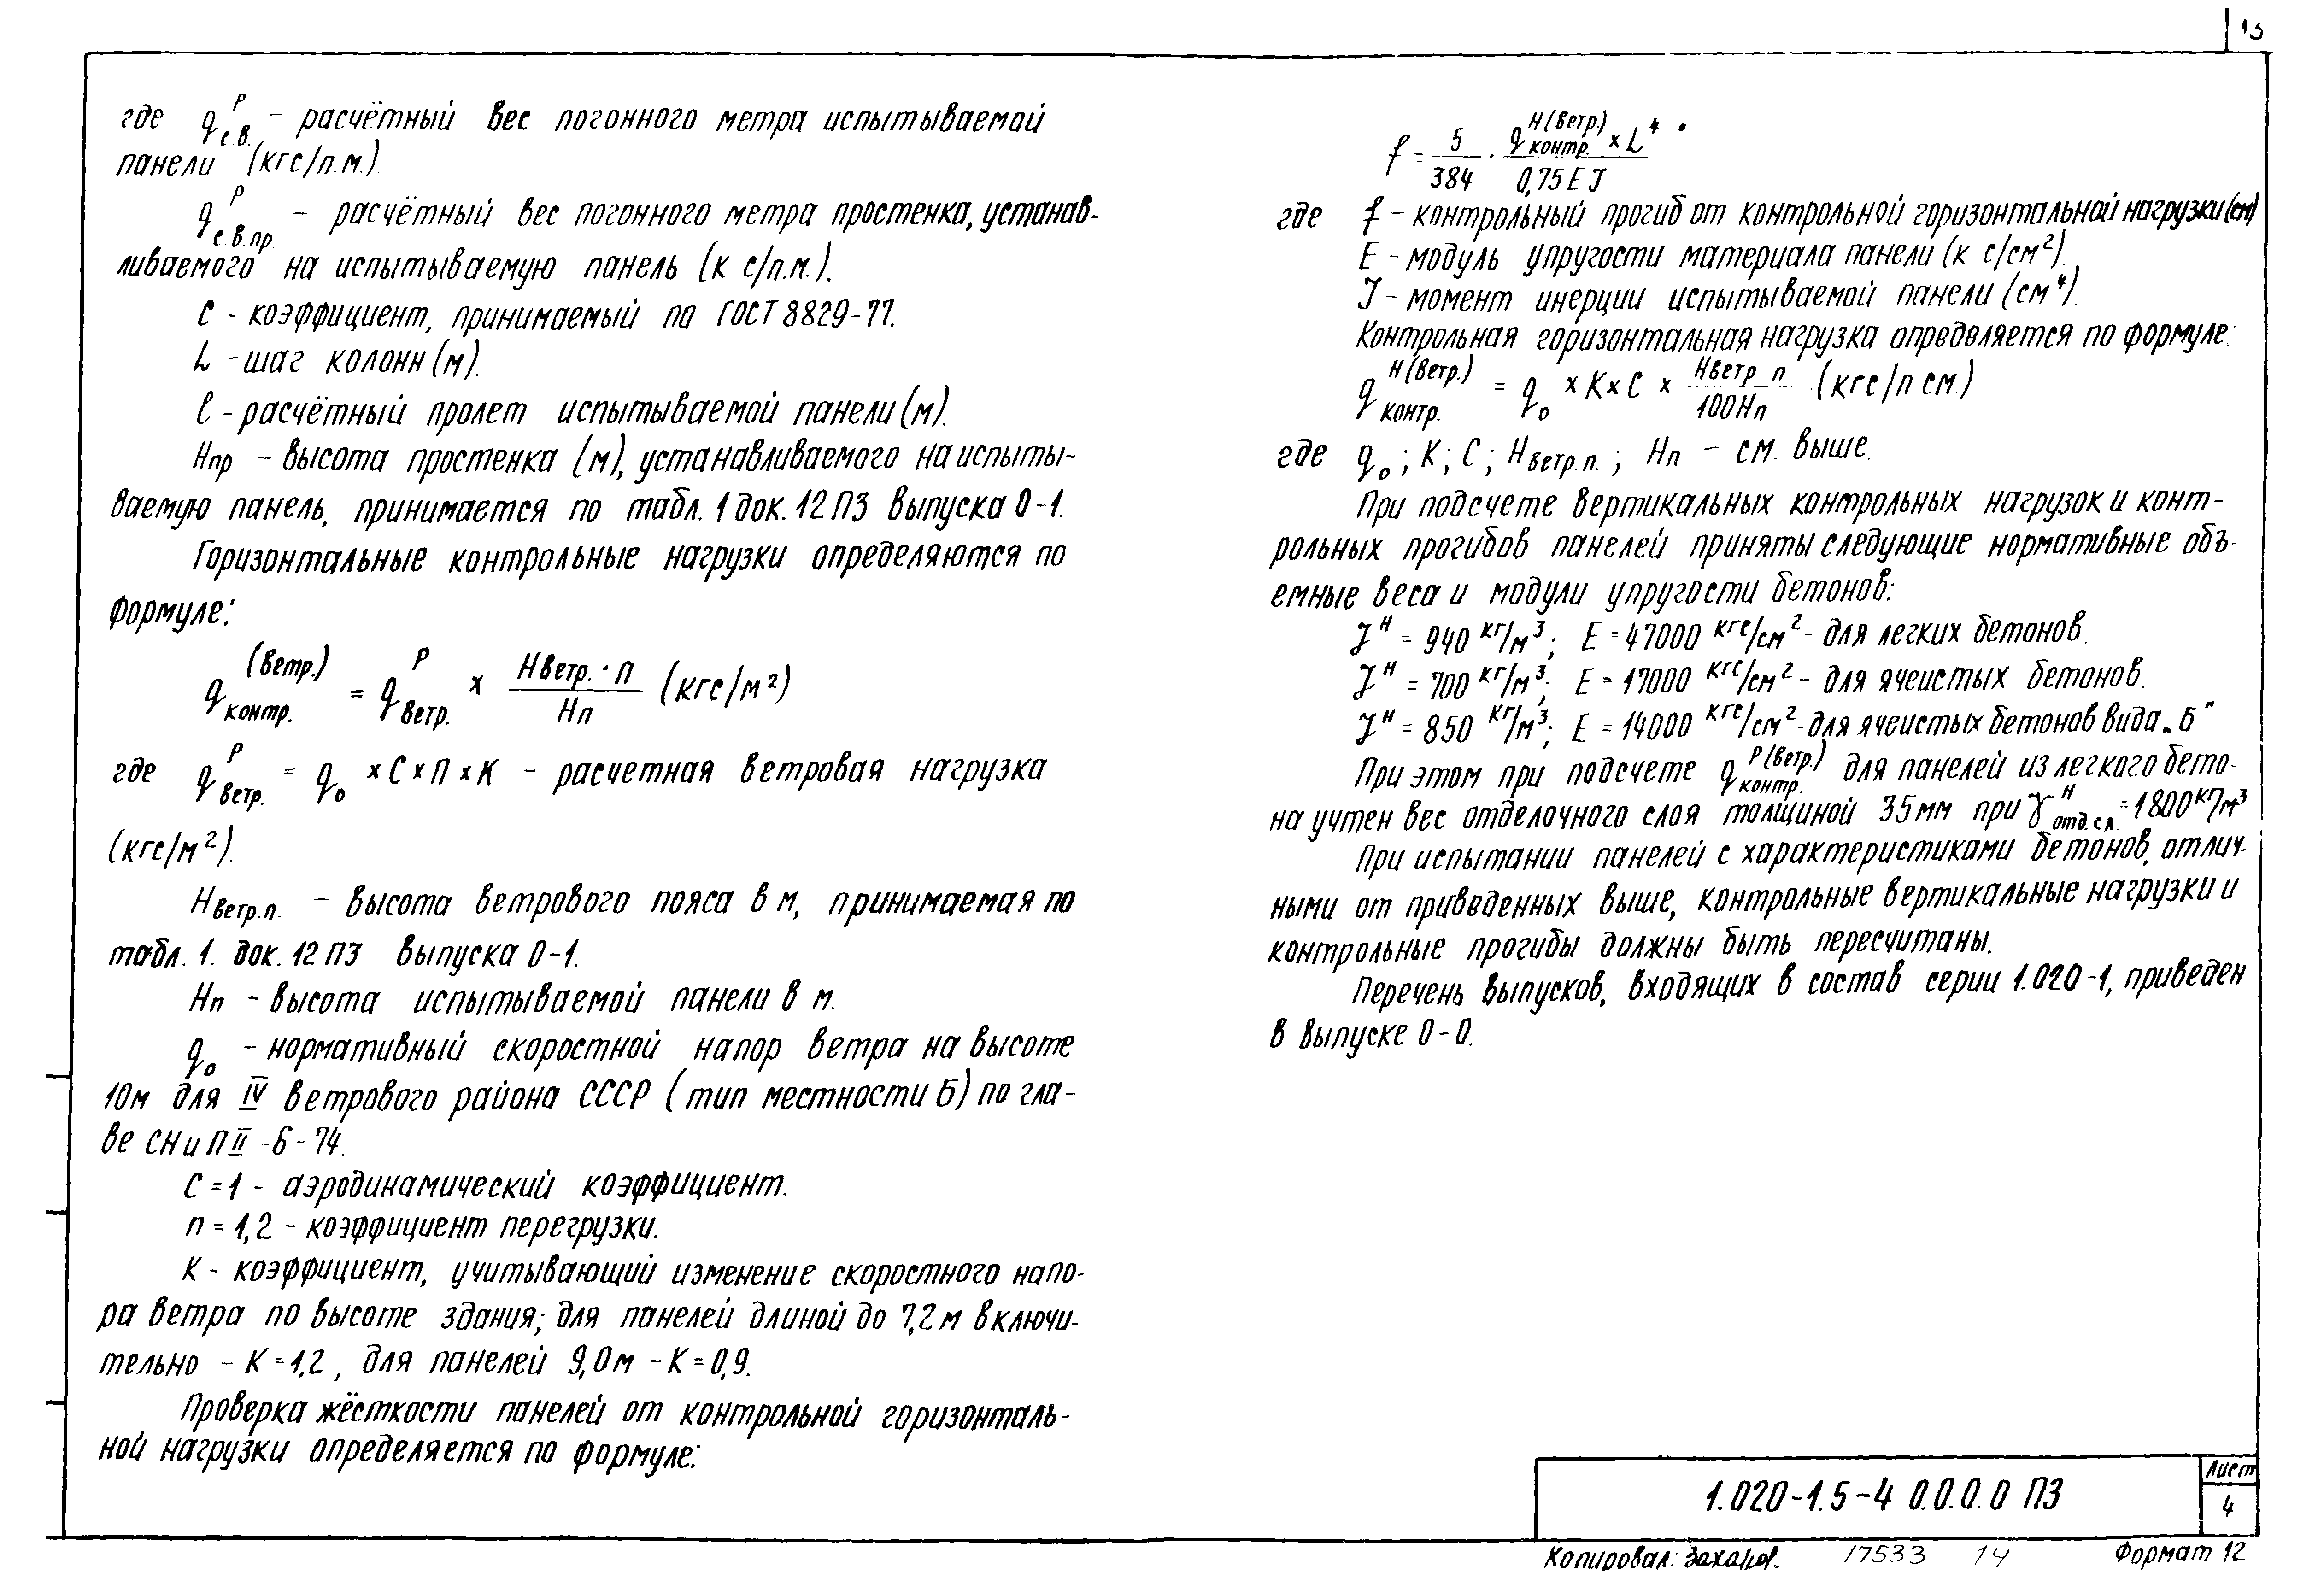 13
где q с.в. Р - расчётный вес погонного метра испытываемой
панели (кгс/п.м.).
q с.в.пр. Р - расчётный вес погонного метра простенка, устанав-
ливаемого на испытываемую панель (к с/п.м.).
С - коэффициент, принимаемый по ГОСТ 8829-77.
L - шаг колонн (м).
ℓ - расчётный пролет испытываемой панели (м).
Нпр - высота простенка (м), устанавливаемого на испыты-
ваемую панель, принимается по табл. 1 док. 12 ПЗ выпуска 0-1.
Горизонтальные контрольные нагрузки определяются по
формуле:
q контр. (ветр.) = q ветр. Р × Нветр.·п / Нп (кгс/м²)
где q ветр. Р = q₀ × С × п × К - расчетная ветровая нагрузка
(кгс/м²).
Н ветр.п. - высота ветрового пояса в м, принимаемая по
табл. 1. док. 12 ПЗ выпуска 0-1.
Нп - высота испытываемой панели в м.
q₀ - нормативный скоростной напор ветра на высоте
10м для IV ветрового района СССР (тип местности Б) по гла-
ве СНиП II -6-74.
С = 1 - аэродинамический коэффициент.
п = 1,2 - коэффициент перегрузки.
К - коэффициент, учитывающий изменение скоростного напо-
ра ветра по высоте здания; для панелей длиной до 7,2 м включи-
тельно - К = 1,2, для панелей 9,0м - К = 0,9.
Проверка жёсткости панелей от контрольной горизонталь-
ной нагрузки определяется по формуле:
f = 5/384 · q контр. Н(ветр.) × L⁴ / 0,75 E J
где f - контрольный прогиб от контрольной горизонтальной нагрузки (см)
E - модуль упругости материала панели (к с/см²).
J - момент инерции испытываемой панели (см⁴).
Контрольная горизонтальная нагрузка определяется по формуле:
q контр. Н(ветр.) = q₀ × К × С × Нветр п / 100Нп (кгс/п.см.)
где q₀; К; С; Н ветр.п.; Нп - см. выше.
При подсчете вертикальных контрольных нагрузок и конт-
рольных прогибов панелей приняты следующие нормативные объ-
емные веса и модули упругости бетонов:
γᴴ = 940 кг/м³; E = 47000 кгс/см² - для легких бетонов.
γᴴ = 700 кг/м³; E = 17000 кгс/см² - для ячеистых бетонов.
γᴴ = 850 кг/м³; E = 14000 кгс/см² - для ячеистых бетонов вида „Б"
При этом при подсчете q контр. Р(ветр.) для панелей из легкого бето-
на учтен вес отделочного слоя толщиной 35мм при γ отд.сл. Н = 1800 кг/м³
При испытании панелей с характеристиками бетонов, отлич-
ными от приведенных выше, контрольные вертикальные нагрузки и
контрольные прогибы должны быть пересчитаны.
Перечень выпусков, входящих в состав серии 1.020-1, приведен
в выпуске 0-0.
1.020-1.5-4 0.0.0.0 ПЗ
Лист
4
Копировал: 17533 14 Формат 12